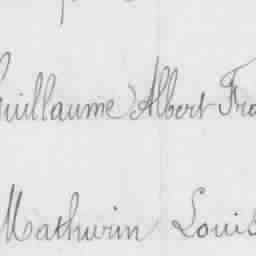 Guillaume Albert Fra
Mathurin Louis